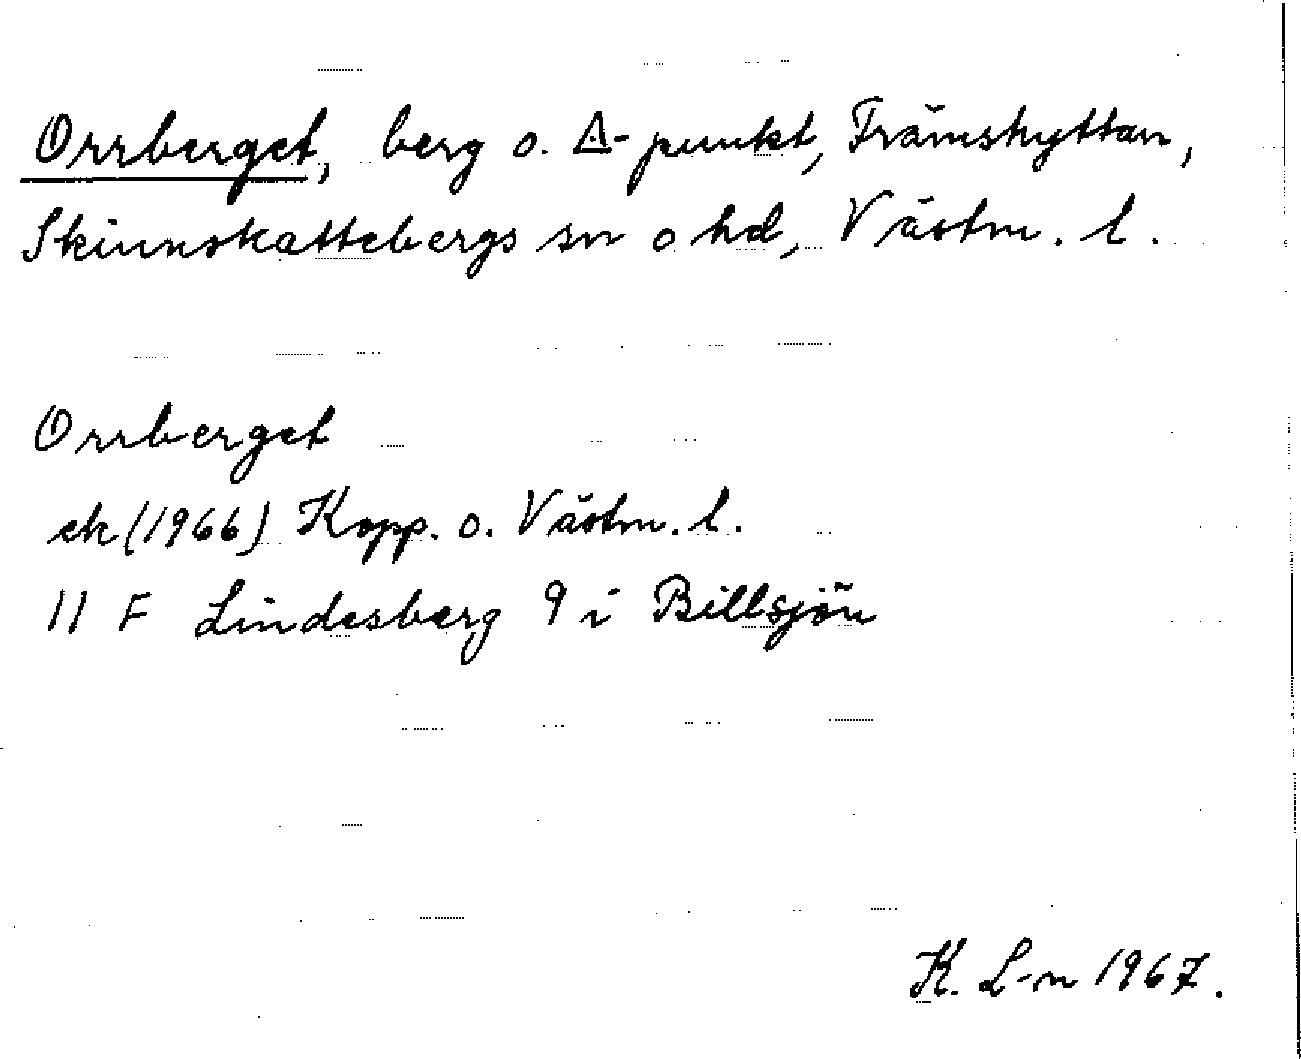 Orrberget, berg o. △-punkt, Främshyttan,
Skinnskattebergs sn o hd, Västm. l.
Orrberget
ek (1966) Kopp. o. Västm. l.
11 F Lindesberg 9 i Billsjön
K. L-n 1967.